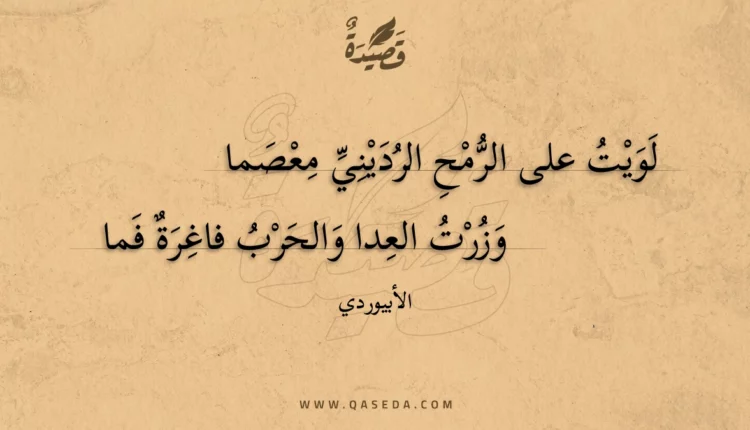 قَصِيدَةٌ
لَوَيْتُ على الرُّمْحِ الرُدَيْنِيِّ مِعْصَما
وَزُرْتُ العِدا وَالحَرْبُ فاغِرَةٌ فَما
الأبيوردي
WWW.QASEDA.COM